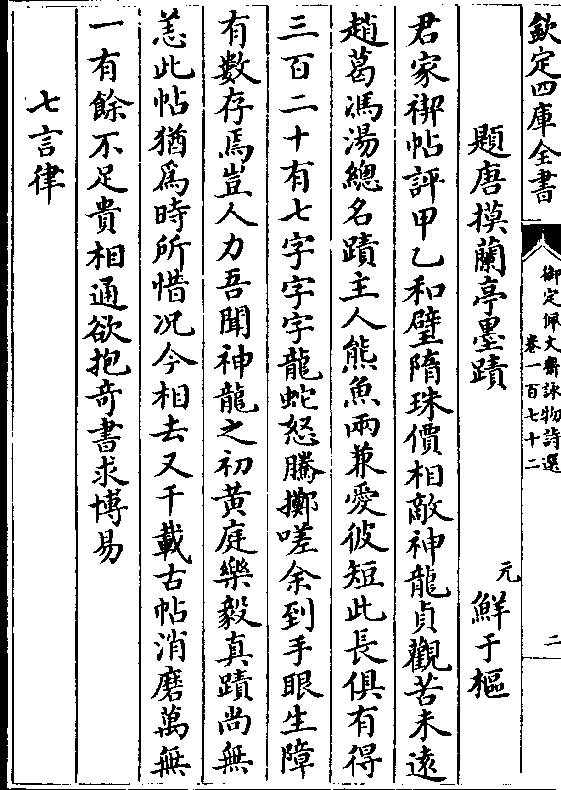 欽定四庫全書
御定佩文齋詠物詩選
卷一百七十二
二
題唐摸蘭亭墨蹟
元
鮮于樞
君家禊帖評甲乙和璧隋珠價相敵神龍貞觀苦未遠
趙葛馮湯總名蹟主人熊魚兩兼愛彼短此長俱有得
三百二十有七字字字龍蛇怒騰擲嗟余到手眼生障
有數存焉豈人力吾聞神龍之初黃庭樂毅真蹟尚無
恙此帖猶為時所惜况今相去又千載古帖消磨萬無
一有餘不足貴相通欲抱奇書求博易
七言律